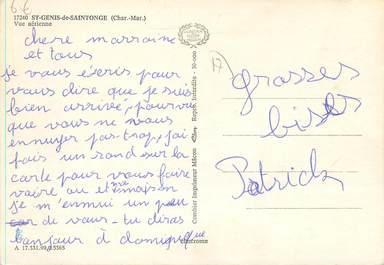 6 €
17240 ST-GENIS-de-SAINTONGE (Char.-Mar.)
Vue aérienne
chere marraine
et tous
je vous écris pour
vous dire que je suis
bien arrivé, pourvu
que vous ne vous
ennuyer pas trop, j'ai
fais un rond sur la
carte pour vous faire
voire ou et maison
je m'enmui un peu
de vous - tu diras
bonjour à domique
A 17.331.49.0.5565
Combier Imprimeur Mâcon
Repro. Interdite - 30-000
17
grosses
bises
Patrick